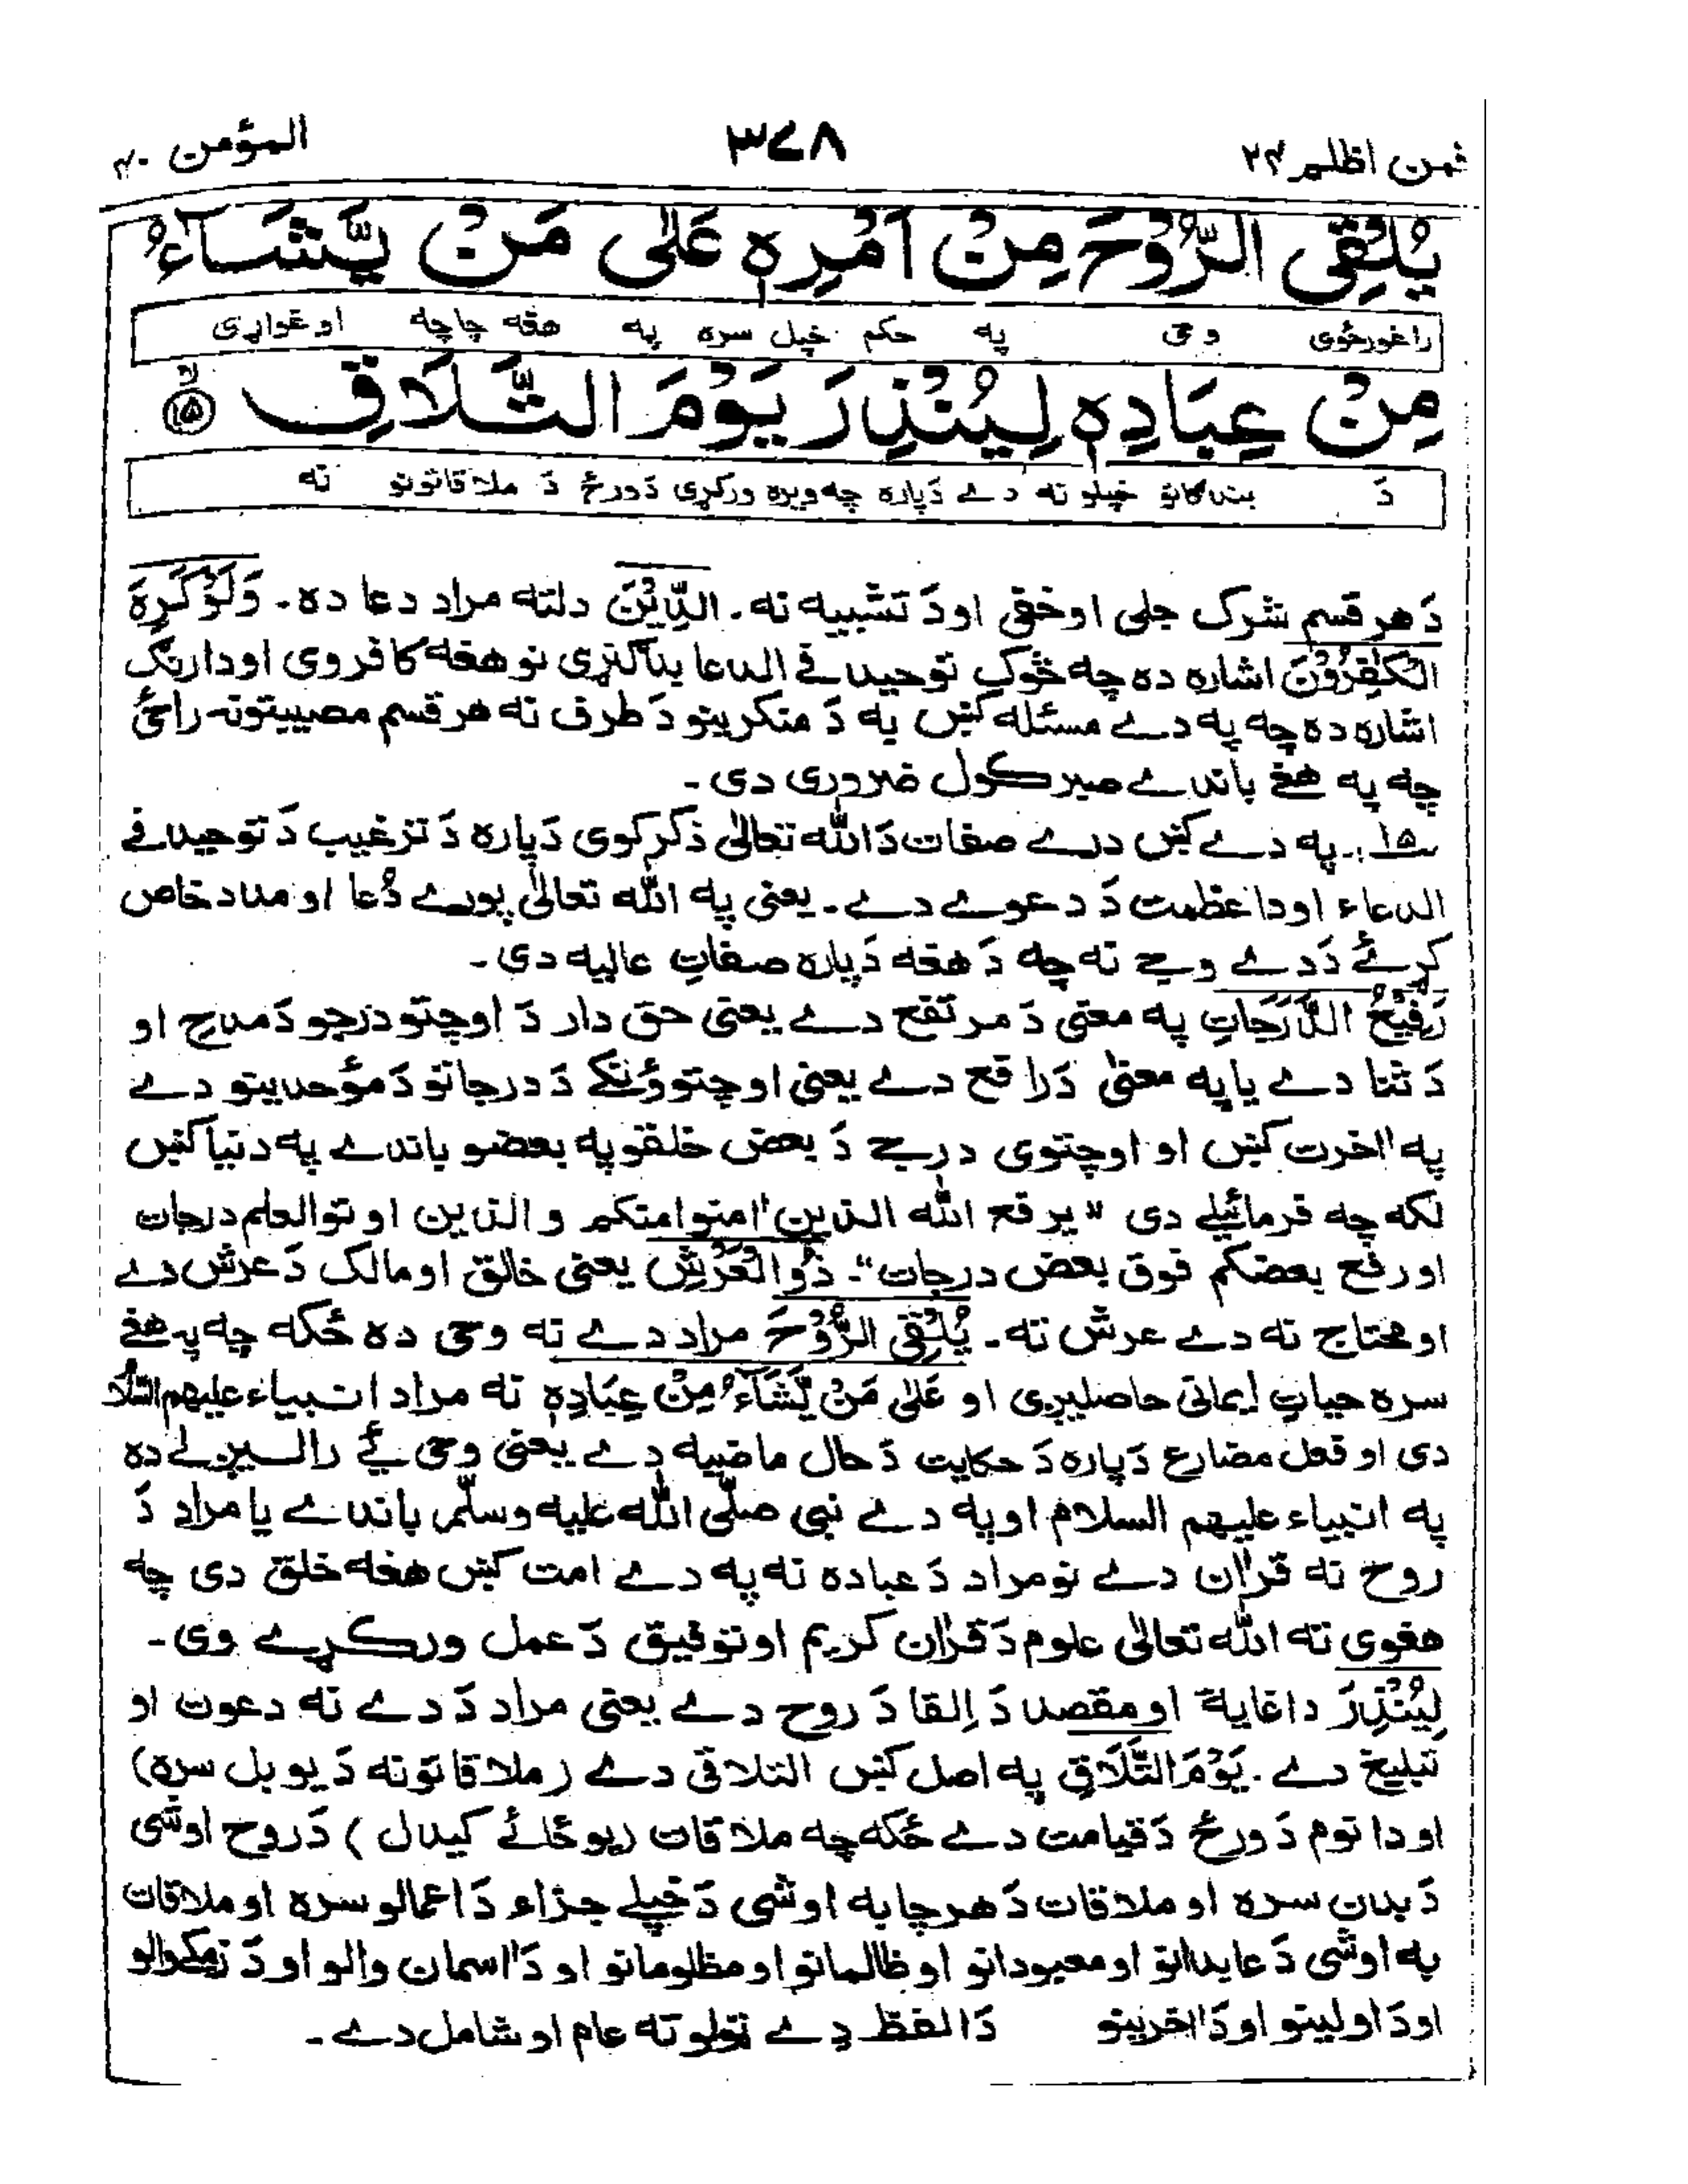 فمن اظلم ۲۴ ۳۷۸ المؤمن ۴۰
يُلْقِي الرُّوْحَ مِنْ اَمْرِهٖ عَلٰى مَنْ يَّشَآءُ
راغورځوی وحی په حکم خپل سره په هغه چاچه اوغواړی
مِنْ عِبَادِهٖ لِيُنْذِرَ يَوْمَ التَّلَاقِ ۙ ⑮
دَ بندگانو خپلو نه دے دَپاره چه ویره ورکړی دَورځ دَ ملاقاتونو نه
دَ هر قسم شرک جلی اوخفی اودَ تشبیه نه۔ الدِّيْنَ دلته مراد دعا ده۔ وَلَوْ كَرِهَ
الْكٰفِرُوْنَ اشاره ده چه څوک توحید فی الدعا بدآګنړی نو هغه کافر وی اودارنګ
اشاره ده چه په دے مسئله کښ به دَ منکرینو دَ طرف نه هر قسم مصیبتونه راځی
چه په هغے باندے صبر کول ضروری دی۔
؁۱۵:۔ په دے کښ درے صفات دَ الله تعالٰی ذکر کوی دَپاره دَ ترغیب دَ توحید فی
الدعاء اودا عظمت دَ دعوے دے۔ یعنی په الله تعالٰی پورے دُعا او مدد خاص
کړئے دَدے وجے نه چه دَ هغه دَپاره صفاتِ عالیه دی۔
رَفِيْعُ الدَّرَجَاتِ په معنی دَ مرتفع دے یعنی حق دار دَ اوچتو درجو دَ مدح او
دَ ثنا دے یاپه معنیٰ دَ رافع دے یعنی اوچتوؤنکے دَ درجاتو دَ مؤحدینو دے
په اٰخرت کښ او اوچتوی درجے دَ بعض خلقو په بعضو باندے په دنیا کښ
لکه چه فرمائیلے دی "یرفع الله الذین اٰمنوا منکم والذین اوتوالعلم درجات
اورفع بعضکم فوق بعض درجات"۔ ذُو الْعَرْشِ یعنی خالق اومالک دَ عرش دے
اومحتاج نه دے عرش ته۔ يُلْقِي الرُّوْحَ مراد دے نه وحی ده ځکه چه په هغے
سره حیاتِ ایمانی حاصلیږی او عَلٰى مَنْ يَّشَآءُ مِنْ عِبَادِهٖ نه مراد انبیاء علیهم السلام
دی او فعل مضارع دَپاره دَ حکایت دَ حال ماضیه دے یعنی وحی ئے رالیږلے ده
په انبیاء علیهم السلام اوپه دے نبی صلّی الله علیه وسلّم باندے یا مراد دَ
روح نه قرآن دے نومراد دَ عباده نه په دے امت کښ هغه خلق دی چه
هغوی ته الله تعالٰی علوم دَ قرآن کریم اوتوفیق دَ عمل ورکړے وی۔
لِيُنْذِرَ داغایة اومقصد دَ اِلقا دَ روح دے یعنی مراد دَ دے نه دعوت او
تبلیغ دے۔ يَوْمَ التَّلَاقِ په اصل کښ التلاقی دے (ملاقاتونه دَ یو بل سره)
اودا نوم دَ ورځ دَ قیامت دے ځکه چه ملاقات (یوځائے کیدال) دَ روح اوشی
دَ بدن سره او ملاقات دَ هر چا به اوشی دَ خپلے جزاء دَ اعمالو سره او ملاقات
به اوشی دَ عابدانو او معبودانو او ظالمانو او مظلومانو او دَ اٰسمان والو او دَ زمکے والو
اودَ اولینو اودَ اٰخرینو دَا لفظ دے ټولو ته عام او شامل دے۔